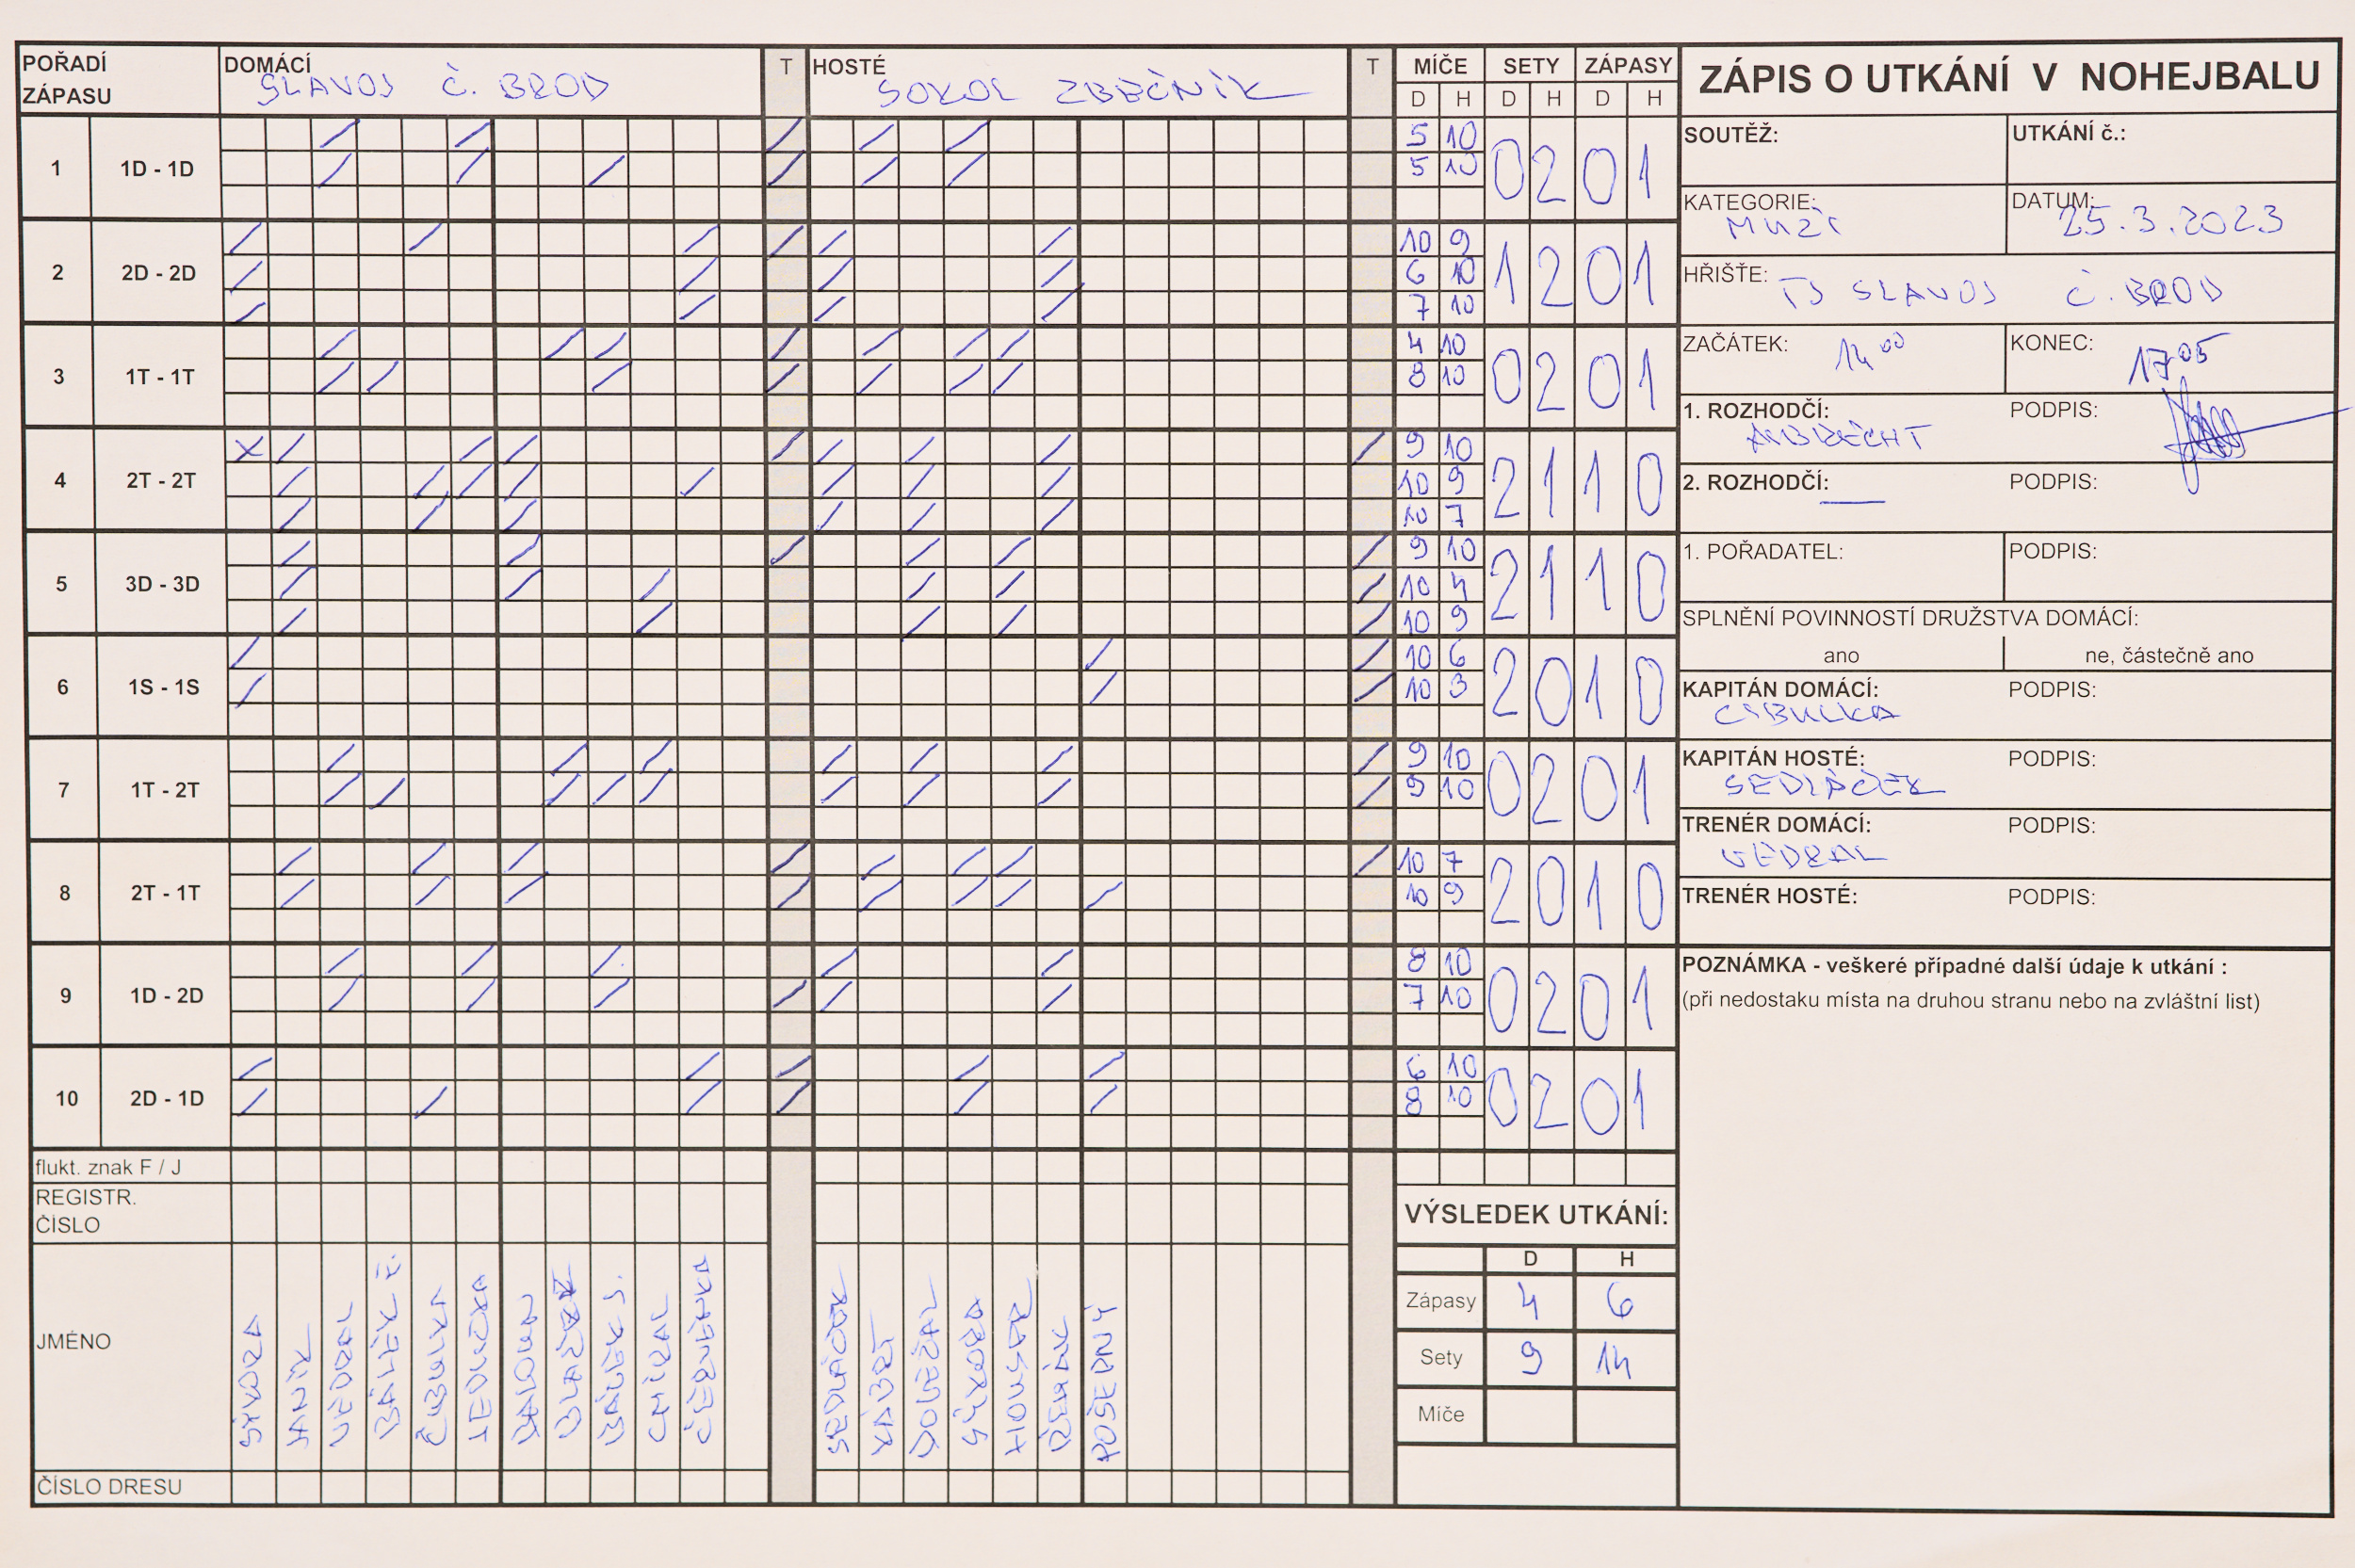 POŘADÍ ZÁPASU DOMÁCÍ SLAVOJ Č. BROD T HOSTÉ SOKOL ZBEČNÍK T MÍČE SETY ZÁPASY
D H D H D H
ZÁPIS O UTKÁNÍ V NOHEJBALU
1 1D - 1D 5 10 0 2 0 1
5 10
2 2D - 2D 10 9 1 2 0 1
6 10
7 10
3 1T - 1T 4 10 0 2 0 1
8 10
4 2T - 2T 9 10 2 1 1 0
10 9
10 7
5 3D - 3D 9 10 2 1 1 0
10 4
10 9
6 1S - 1S 10 6 2 0 1 0
10 3
7 1T - 2T 9 10 0 2 0 1
9 10
8 2T - 1T 10 7 2 0 1 0
10 9
9 1D - 2D 8 10 0 2 0 1
7 10
10 2D - 1D 6 10 0 2 0 1
8 10
flukt. znak F / J
REGISTR. ČÍSLO
JMÉNO SÝKORA HANÍK VEDRAL BÁLEK Č. CIBULKA JEDLIČKA KALOUS BÁLEK S. CMÍRAL ČERVENKA SEDLÁČEK KÁBRT DOLEŽAL SÝKORA HOUSAR BERÁN POSEDNÝ
ČÍSLO DRESU
VÝSLEDEK UTKÁNÍ:
D H
Zápasy 4 6
Sety 9 14
Míče
SOUTĚŽ: UTKÁNÍ č.:
KATEGORIE: MUŽI DATUM: 25.3.2023
HŘIŠTE: TJ SLAVOJ Č. BROD
ZAČÁTEK: 14 00 KONEC: 17 05
1. ROZHODČÍ: PODPIS:
2. ROZHODČÍ: PODPIS:
1. POŘADATEL: PODPIS:
SPLNĚNÍ POVINNOSTÍ DRUŽSTVA DOMÁCÍ:
ano ne, částečně ano
KAPITÁN DOMÁCÍ: CIBULKA PODPIS:
KAPITÁN HOSTÉ: SEDLÁČEK PODPIS:
TRENÉR DOMÁCÍ: VEDRAL PODPIS:
TRENÉR HOSTÉ: PODPIS:
POZNÁMKA - veškeré případné další údaje k utkání :
(při nedostaku místa na druhou stranu nebo na zvláštní list)